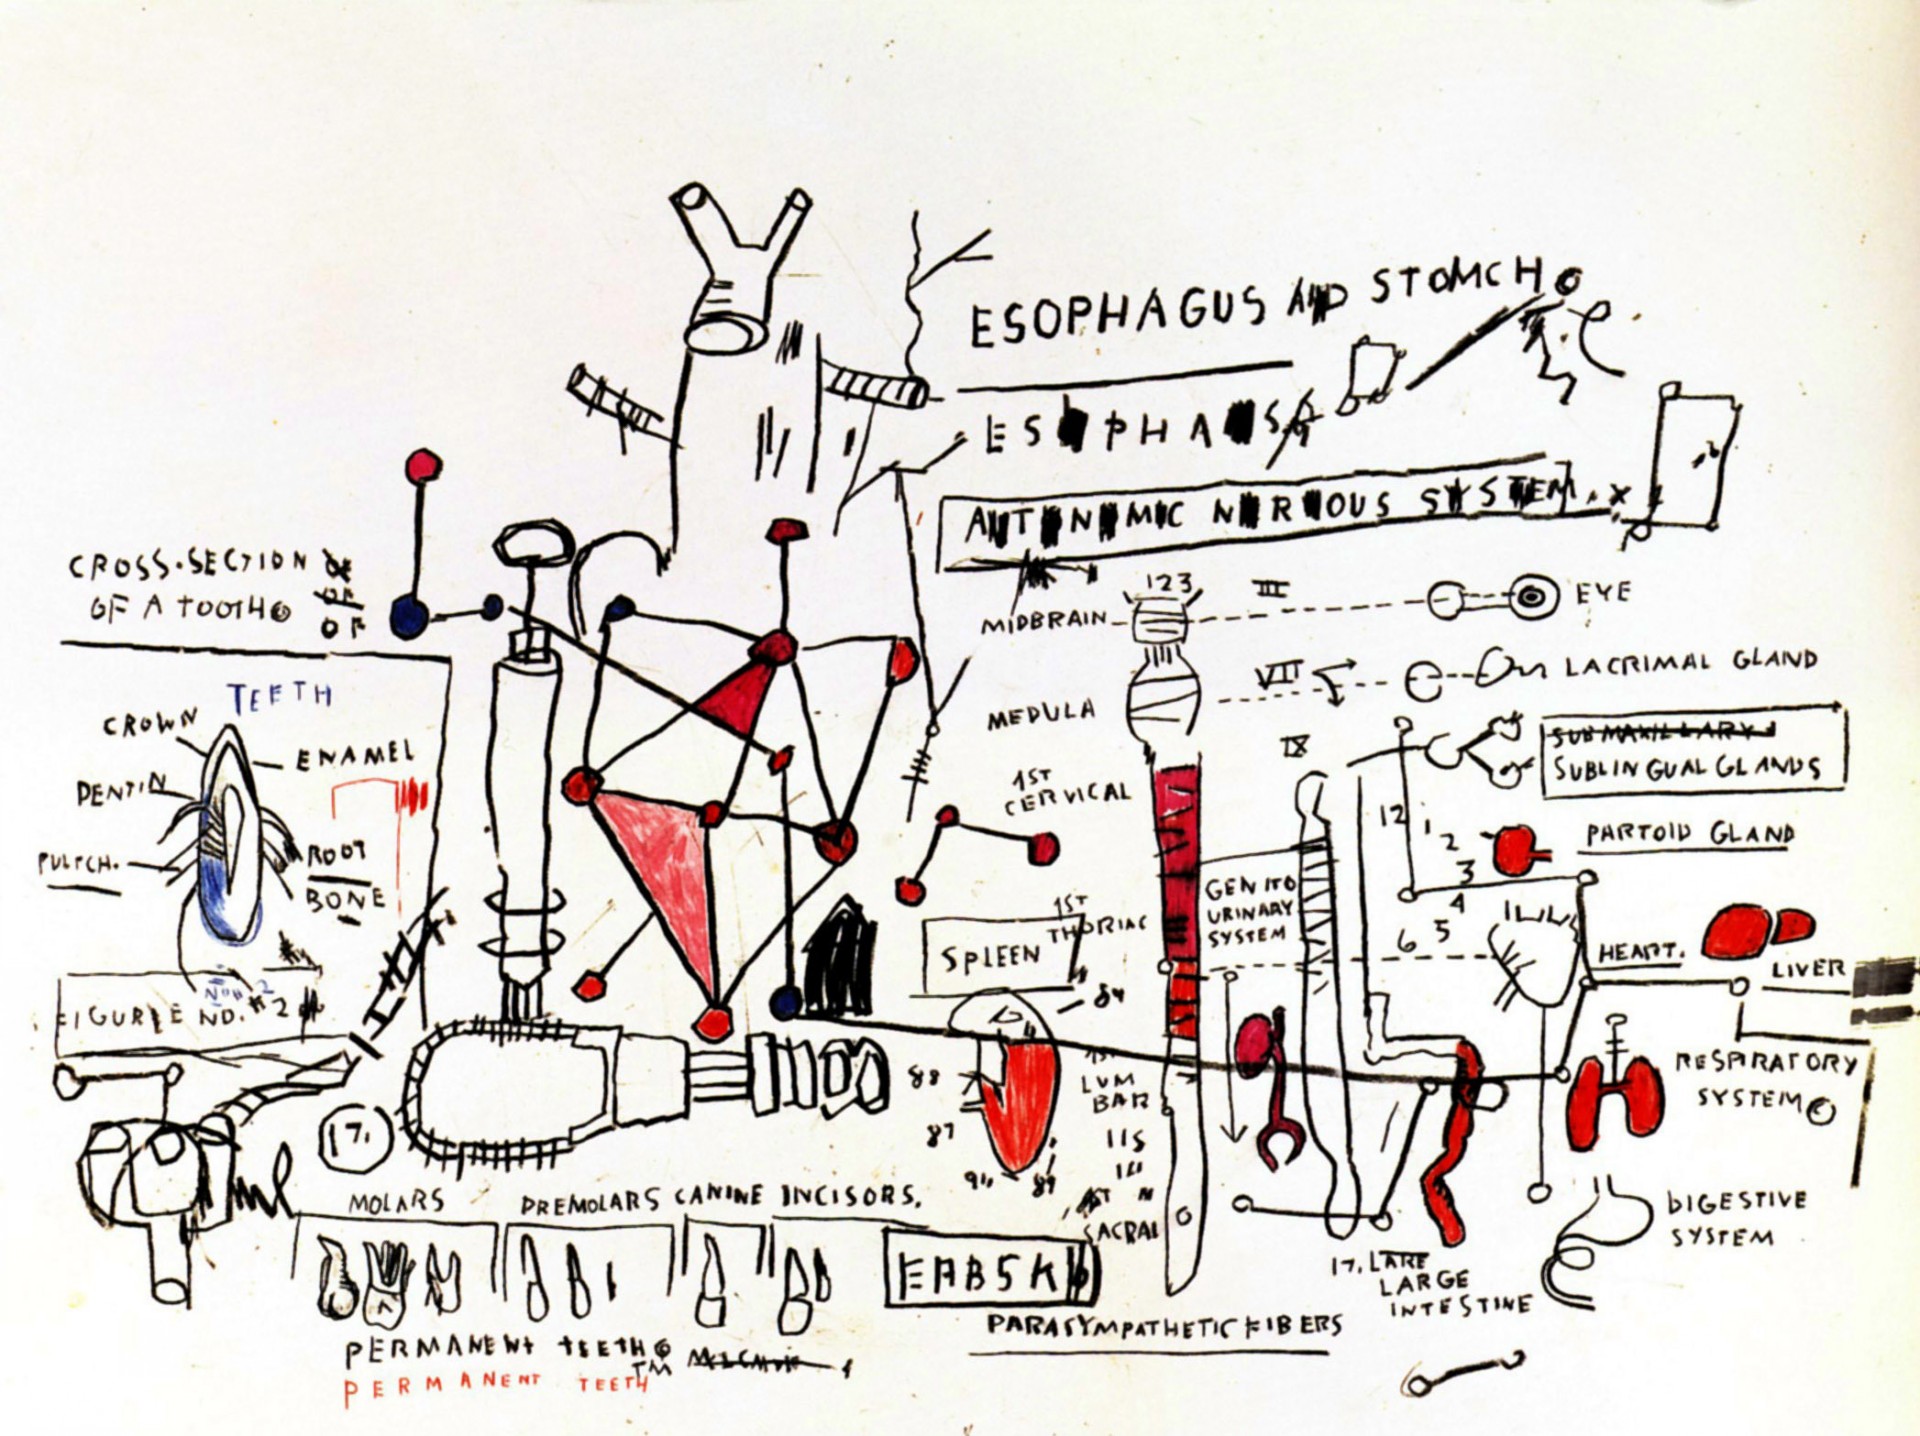 ESOPHAGUS AND STOMCH
ESOPHA
AUTONOMIC NERVOUS SYSTEM.
CROSS-SECTION OF
OF A TOOTH © OF
OF
TEETH
CROWN
ENAMEL
DENTIN
PULPCH.
ROOT
BONE
FIGURE NO. #2
17.
MOLARS
PREMOLARS CANINE INCISORS.
PERMANENT TEETH ©
TM
PERMANENT TEETH
EABSK
123
MIDBRAIN
III
EYE
VII
LACRIMAL GLAND
MEDULA
IX
SUBMAXILLARY
SUBLINGUAL GLANDS
1ST
CERVICAL
12
1
2
3
4
5
6
PARTOID GLAND
GENITO
URINARY
SYSTEM
1ST
THORIAC
SPLEEN
HEART.
LIVER
88
87
89
1ST
LUM
BAR
RESPIRATORY
SYSTEM ©
SACRAL
DIGESTIVE
SYSTEM
17. LARE
LARGE
INTESTINE
PARASYMPATHETIC FIBERS